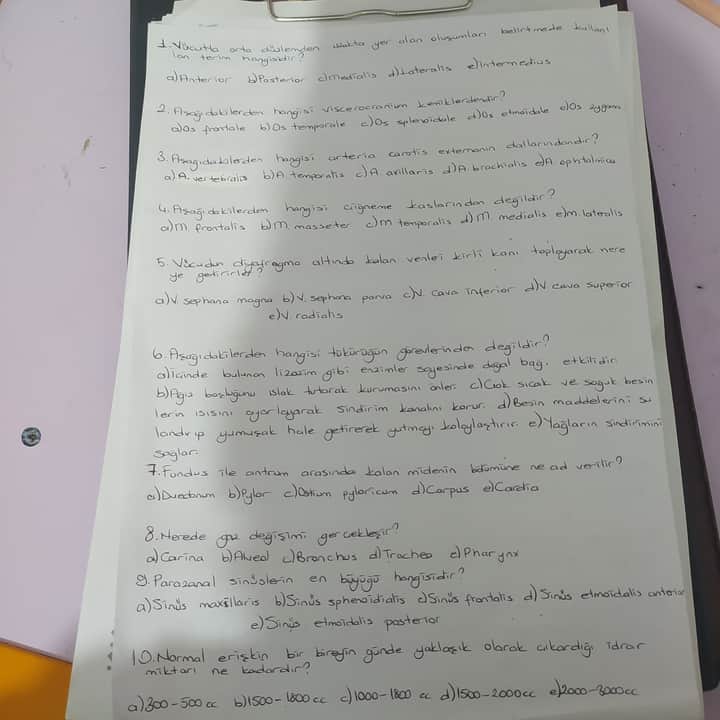 1. Vücutta orta düzlemden uzakta yer alan oluşumları belirtmede kullanı
lan terim hangisidir?
a)Anterior b)Posterior c)Medialis d)Lateralis e)Intermedius
2. Aşağıdakilerden hangisi viscerocranium kemiklerdendir?
a)Os frontale b)Os temporale c)Os sphenoidale d)Os etmoidale e)Os zygoma
3. Aşağıdakilerden hangisi arteria carotis externanın dallarındandır?
a)A. vertebralis b)A. temporalis c)A axillaris d)A. brachialis e)A. ophtalmica
4. Aşağıdakilerden hangisi çiğneme kaslarından değildir?
a)M. frontalis b)M. masseter c)m temporalis d)M. medialis e)m. lateralis
5. Vücudun diyafragma altında kalan venleri kirli kanı toplayarak nere
ye getirirler?
a)V sephana magna b)V. sephana parva c)V. Cava inferior d)V cava superior
e)V. radialis
6. Aşağıdakilerden hangisi tükürüğün görevlerinden değildir?
a)içinde bulunan lizozim gibi enzimler sayesinde doğal bağ. etkilidir
b)Ağız boşluğunu ıslak tutarak kurumasını önler. c)Çok sıcak ve soğuk besin
lerin ısısını ayarlayarak sindirim kanalını korur. d)Besin maddelerini su
landırıp yumuşak hale getirerek yutmayı kolaylaştırır. e)Yağların sindirimini
sağlar.
7. Fundus ile antrum arasında kalan midenin bölümüne ne ad verilir?
a)Duedonum b)Pylor c)Ostium pyloricum d)Corpus e)Cardia
8. Nerede gaz değişimi gerçekleşir?
a)Carina b)Alveol c)Bronchus d)Trachea e)Pharynx
9. Paranazal sinüslerin en büyüğü hangisidir?
a)Sinüs maxillaris b)Sinüs sphenoidialis c)Sinüs frontalis d)Sinüs etmoidalis anterior
e)Sinüs etmoidalis posterior
10. Normal erişkin bir bireyin günde yaklaşık olarak çıkardığı idrar
miktarı ne kadardır?
a)300-500 cc b)1500-1800 cc c)1000-1800 cc d)1500-2000 cc e)2000-3000 cc